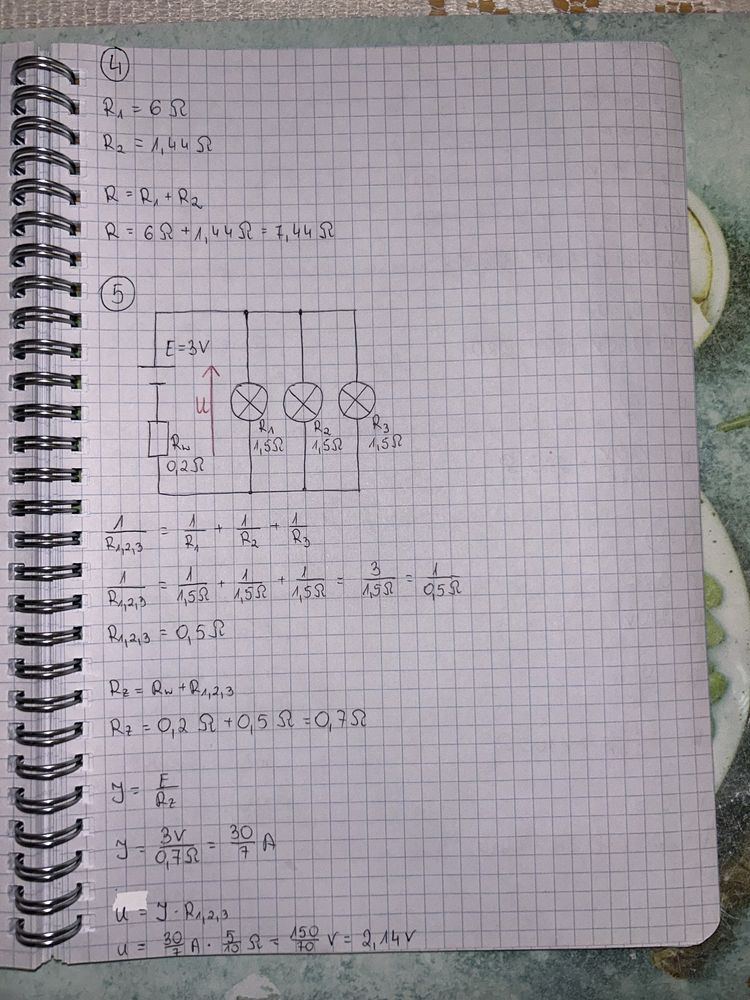 4
R₁ = 6 Ω
R₂ = 1,44 Ω
R = R₁ + R₂
R = 6 Ω + 1,44 Ω = 7,44 Ω
5
E = 3V
U
R_w
0,2 Ω
R₁
1,5 Ω
R₂
1,5 Ω
R₃
1,5 Ω
1/R₁,₂,₃ = 1/R₁ + 1/R₂ + 1/R₃
1/R₁,₂,₃ = 1/1,5Ω + 1/1,5Ω + 1/1,5Ω = 3/1,5Ω = 1/0,5Ω
R₁,₂,₃ = 0,5 Ω
R_z = R_w + R₁,₂,₃
R_z = 0,2 Ω + 0,5 Ω = 0,7 Ω
J = E/R_z
J = 3V/0,7Ω = 30/7 A
U = J · R₁,₂,₃
U = 30/7 A · 5/10 Ω = 150/70 V = 2,14 V